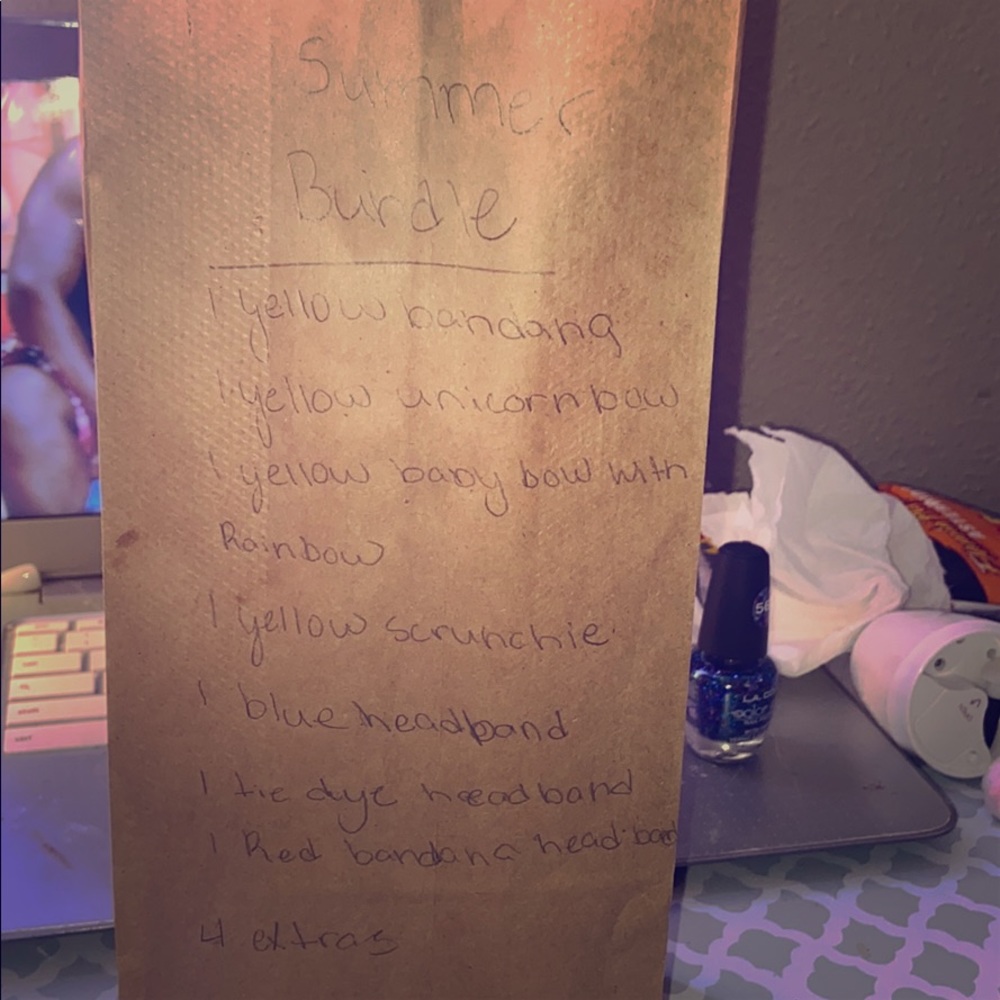 Summer
Bundle
1 yellow bandana
1 yellow unicorn bow
1 yellow baby bow with
Rainbow
1 yellow scrunchie
1 blue headband
1 tie dye headband
1 Red bandana headband
4 extras
L.A. CO
color